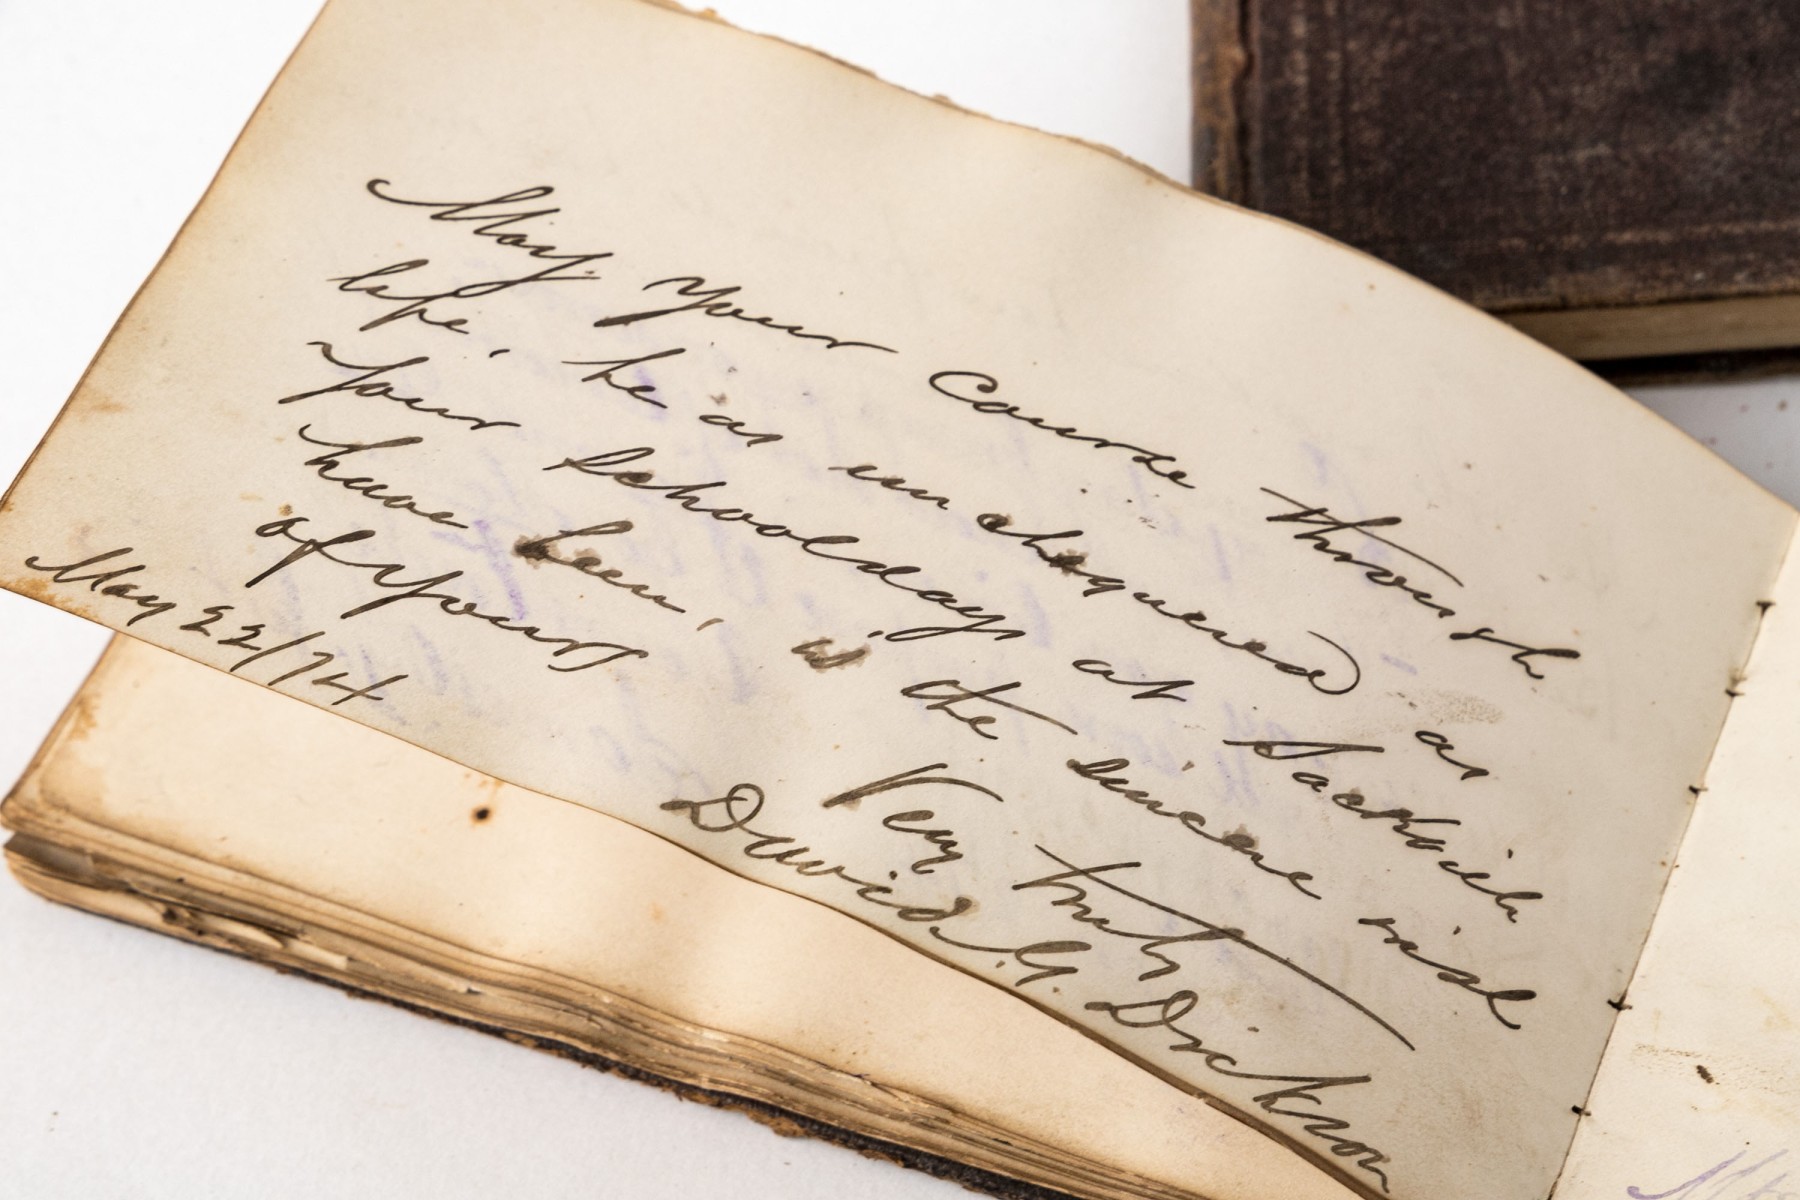 May your Course through
life, be as unchequered as
your schooldays at Sackville
have been, is the sincere wish
of yours
Very truly
David G. Dickson
May 22/74